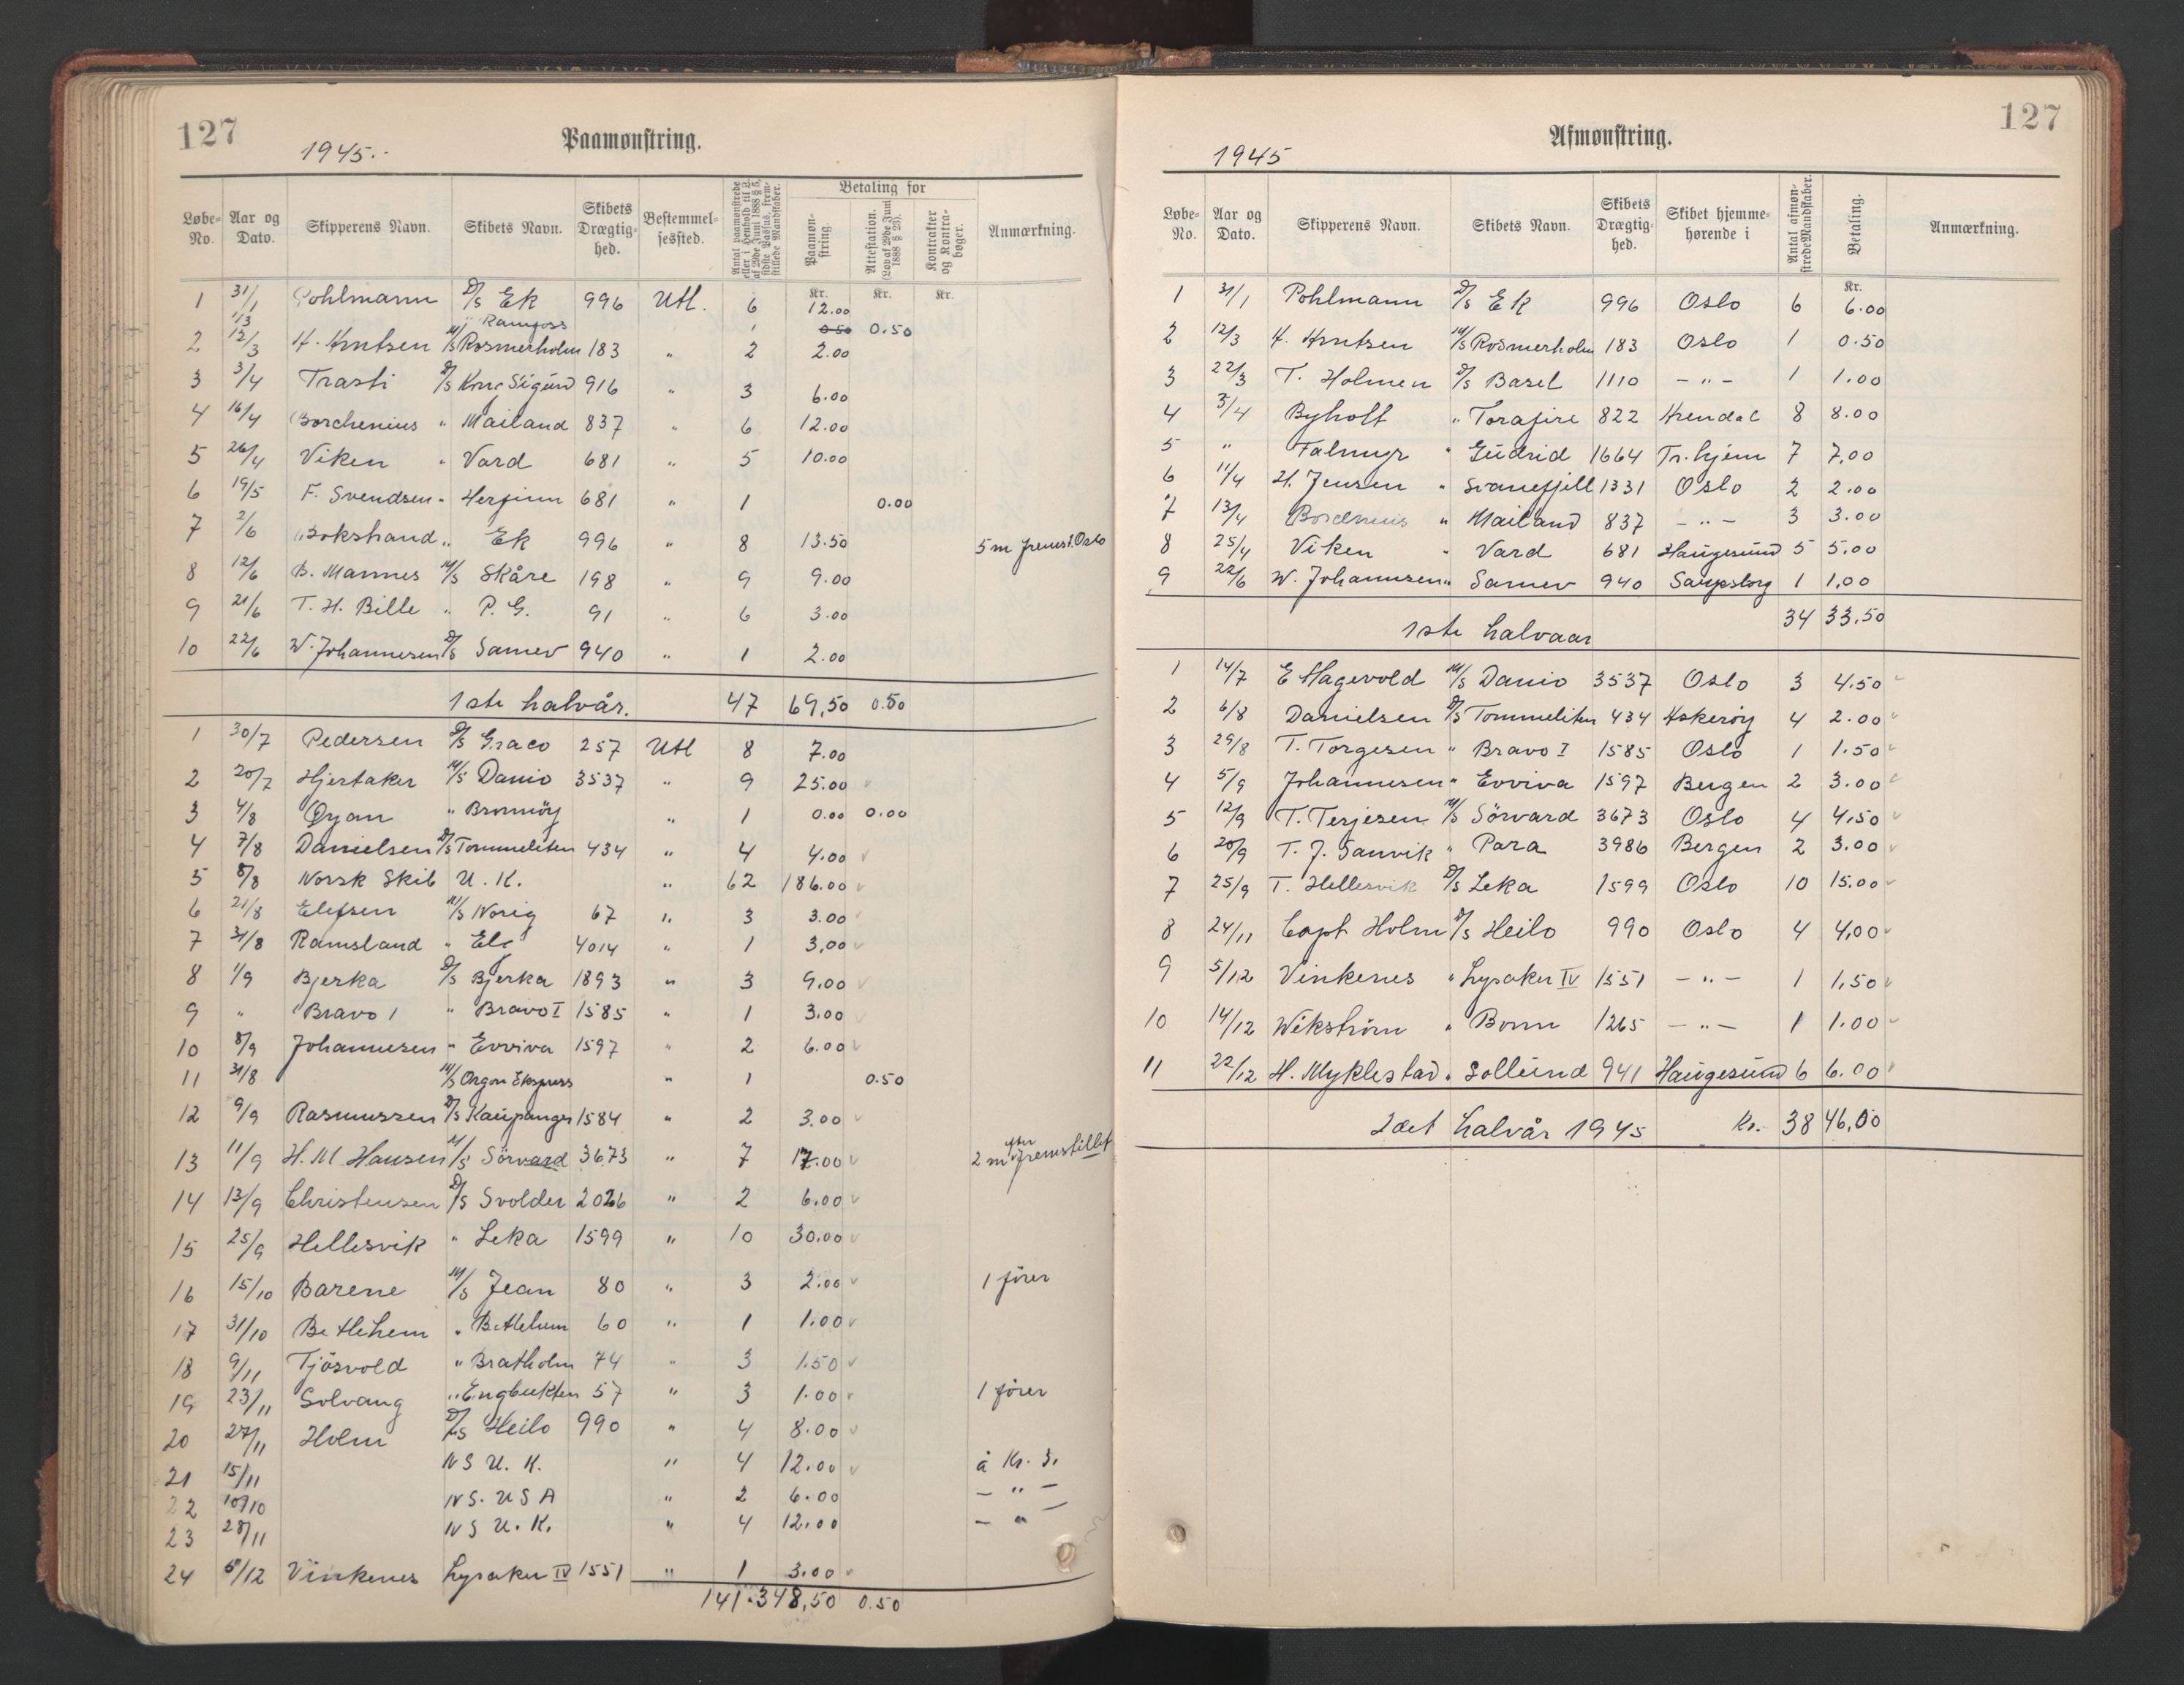 127
1945.
Paamønstring.
Løbe-No. | Aar og Dato. | Skipperens Navn. | Skibets Navn. | Skibets Drægtighed. | Bestemmelsessted. | Antal paamønstrede eller i Henhold til L. af 29de Juni 1888 § 5, sidste Passus, fremstillede Mandskaber. | Betaling for | Paamønstring. | Attestation. (Lov af 29de Juni 1888 § 23). | Kontrakter og Kontrabøger. | Anmærkning.
Kr. Kr. Kr.
1 31/1 Pohlmann D/S Ek 996 Utl. 6 12.00
1/3 " Ramfoss 1 0.50 0.50
2 12/3 H. Knutsen M/S Rosmerholm 183 " 2 2.00
3 3/4 Trasti D/S Kong Sigurd 916 " 3 6.00
4 16/4 Borchenius " Mailand 837 " 6 12.00
5 26/4 Viken " Vard 681 " 5 10.00
6 19/5 F. Svendsen " Herfinn 681 " 1 0.00
7 2/6 Bokstrand " Ek 996 " 8 13.50 5 m fremst. Oslo
8 12/6 B. Mannes M/S Skåre 198 " 9 9.00
9 21/6 T. H. Bille " P. G. 91 " 6 3.00
10 22/6 W. Johannesen D/S Samev 940 " 1 2.00
1ste halvår. 47 69,50 0.50
1 30/7 Pedersen D/S Graco 257 Utl 8 7.00
2 20/7 Hjertaker M/S Danio 3537 " 9 25.00
3 4/8 Øyan " Bromöy " 1 0.00 0.00
4 7/8 Danielsen D/S Tommeliten 434 " 4 4.00
5 8/8 Norsk Skib U. K. " 62 186.00
6 21/8 Elefsen M/S Norig 67 " 3 3.00
7 31/8 Ramsland " 4014 " 1 3,00
8 1/9 Bjerka D/S Bjerka 1893 " 3 9.00
9 " Bravo 1 " Bravo I 1585 " 1 3.00
10 8/9 Johannesen " Evviva 1597 " 2 6.00
11 31/8 M/S Orgon Ekspress " 1 0.50
12 9/9 Rasmussen D/S Kaupanger 1584 " 2 3.00
13 11/9 H. M Hansen M/S Sörvard 3673 " 7 17.00 2 m efter fremstillet
14 13/9 Christensen D/S Svolder 2026 " 2 6.00
15 25/9 Hellesvik " Leka 1599 " 10 30.00
16 15/10 Barene M/S Jean 80 " 3 2.00 1 förer
17 31/10 Betlehem " Betlehem 60 " 1 1.00
18 9/11 Tjösvold " Bratholm 74 " 3 1.50
19 23/11 Solvang " Engbukten 57 " 3 1.00 1 förer
20 27/11 Holm D/S Heilo 990 " 4 8.00
21 15/11 NS U. K. " 4 12.00 à Kr. 3.
22 10/10 NS. USA " 2 6.00 — " —
23 28/11 NS U. K. " 4 12.00 — " —
24 6/12 Vinkenes Lysaker IV 1551 " 1 3.00
141 348,50 0.50
127
1945
Afmønstring.
Løbe-No. | Aar og Dato. | Skipperens Navn. | Skibets Navn. | Skibets Drægtighed. | Skibet hjemmehørende i | Antal afmønstrede Mandskaber. | Betaling. | Anmærkning.
Kr.
1 31/1 Pohlmann D/S Ek 996 Oslo 6 6.00
2 12/3 H. Knutsen M/S Rosmerholm 183 Oslo 1 0.50
3 22/3 T. Holmen D/S Basel 1110 — " — 1 1.00
4 3/4 Byholt " Torafire 822 Arendal 8 8.00
5 " Falmyr " Gudrid 1664 Tr.hjem 7 7,00
6 11/4 H. Jensen " Svanefjell 1331 Oslo 2 2.00
7 13/4 " Mailand 837 — " — 3 3.00
8 25/4 Viken " Vard 681 Haugesund 5 5.00
9 22/6 W. Johannesen " Samev 940 Sarpsborg 1 1,00
1ste halvaar 34 33,50
1 14/7 E Hagevold M/S Danio 3537 Oslo 3 4.50
2 6/8 Danielsen D/S Tommeliten 434 Askeröy 4 2.00
3 29/8 T. Torgesen " Bravo I 1585 Oslo 1 1.50
4 5/9 Johannesen " Evviva 1597 Bergen 2 3.00
5 12/9 T. Terjesen M/S Sörvard 3673 Oslo 4 4,50
6 20/9 T. J. Sanvik " Para 3986 Bergen 2 3.00
7 25/9 T. Hellesvik D/S Leka 1599 Oslo 10 15.00
8 24/11 Capt Holm D/S Heilo 990 Oslo 4 4,00
9 5/12 Vinkenes " Lysaker IV 1551 — " — 1 1,50
10 14/12 Wikström " Bonn 1265 — " — 1 1.00
11 22/12 H. Myklestad " Sollund 941 Haugesund 6 6.00
2det halvår 1945 Kr. 38 46,00